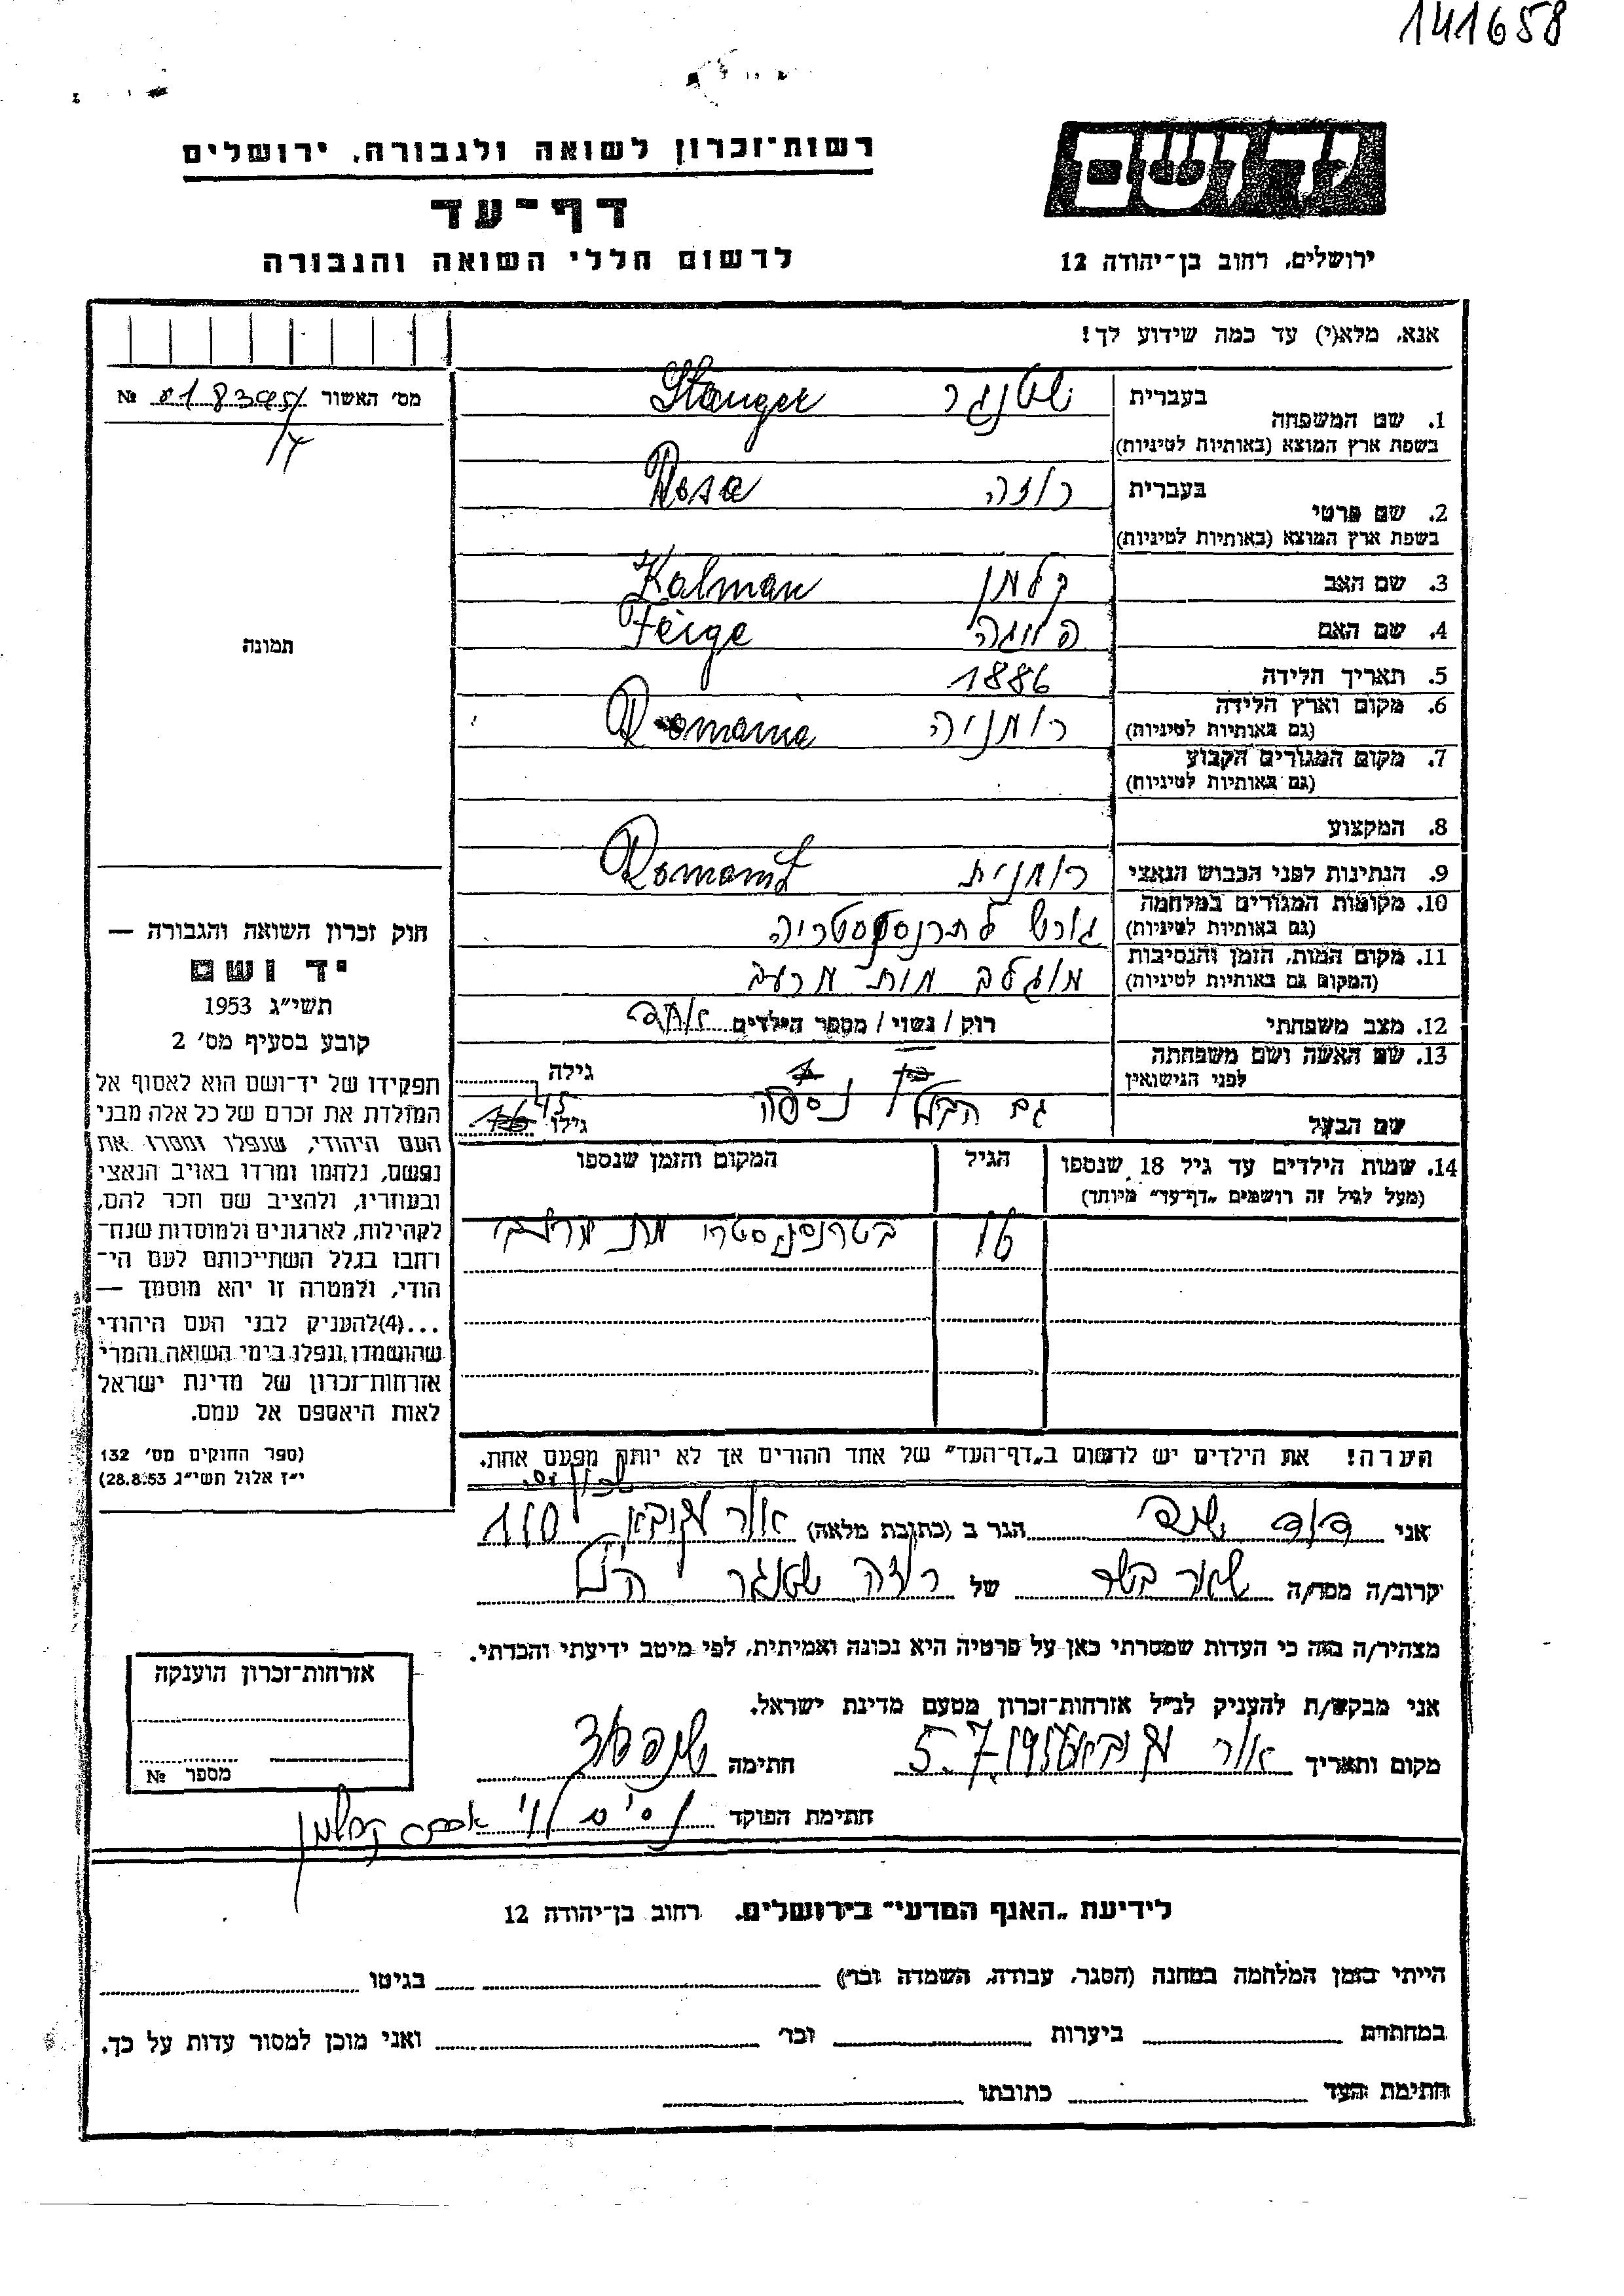 141658
ידושם
רשות־זכרון לשואה ולגבורה, ירושלים
דף־עד
לרשום חללי השואה והגבורה
ירושלים, רחוב בן־יהודה 12
אנא, מלא(י) עד כמה שידוע לך!
מס׳ האשור №
1. שם המשפחה
בעברית שטנגר Stanger
בשפת ארץ המוצא (באותיות לטיניות)
2. שם פרטי
בעברית רוזה Rosa
בשפת ארץ המוצא (באותיות לטיניות)
3. שם האב קלמן Kalman
4. שם האם פייגה Feige
5. תאריך הלידה 1886
6. מקום וארץ הלידה רומניה Romania
(גם באותיות לטיניות)
7. מקום המגורים הקבוע
(גם באותיות לטיניות)
8. המקצוע
9. הנתינות לפני הכבוש הנאצי רומנית
10. מקומות המגורים במלחמה גורש לתרנסניסטריה
(גם באותיות לטיניות)
11. מקום המות, הזמן והנסיבות מוגלב מות מרעב
(המקום גם באותיות לטיניות)
12. מצב משפחתי רוק / נשוי / מספר הילדים
13. שם האשה ושם משפחתה
לפני הנישואין
גילה
שם הבעל גם הבעל נספה גילו 45
14. שמות הילדים עד גיל 18 שנספו
(מעל לגיל זה רושמים „דף־עד״ מיוחד)
הגיל
המקום והזמן שנספו
16 בטרנסניסטריה
הערה! את הילדים יש לרשום ב„דף־העד״ של אחד ההורים אך לא יותר מפעם אחת.
תמונה
חוק זכרון השואה והגבורה —
יד ושם
תשי״ג 1953
קובע בסעיף מס׳ 2
תפקידו של יד־ושם הוא לאסוף אל
המולדת את זכרם של כל אלה מבני
העם היהודי, שנפלו ומסרו את
נפשם, נלחמו ומרדו באויב הנאצי
ובעוזריו, ולהציב שם וזכר להם,
לקהילות, לארגונים ולמוסדות שנח־
רחבו בגלל השתייכותם לעם הי־
הודי, ולמטרה זו יהא מוסמך —
...(4)להעניק לבני העם היהודי
שהושמדו ונפלו בימי השואה והמרי
אזרחות־זכרון של מדינת ישראל
לאות היאספם אל עמם.
(ספר החוקים מס׳ 132
י״ז אלול תשי״ג 28.8.53)
אני דוד הגר ב (כתובת מלאה) אור עקיבא
קרוב/ה מסוי/ה שאר בשר של רוזה שטנגר הנ״ל
מצהיר/ה בזה כי העדות שמסרתי כאן על פרטיה היא נכונה ואמיתית, לפי מיטב ידיעתי והכרתי.
אני מבקש/ת להעניק לנ״ל אזרחות־זכרון מטעם מדינת ישראל.
מקום ותאריך אור עקיבא 5.7.1956 חתימה
חתימת הפוקד
אזרחות־זכרון הוענקה
מספר №
לידיעת „האגף המדעי״ בירושלים, רחוב בן־יהודה 12
הייתי בזמן המלחמה במחנה (הסגר, עבודה, השמדה וכר) בגיטו
במחתרת ביערות וכר׳ ואני מוכן למסור עדות על כך.
חתימת העד כתובתו